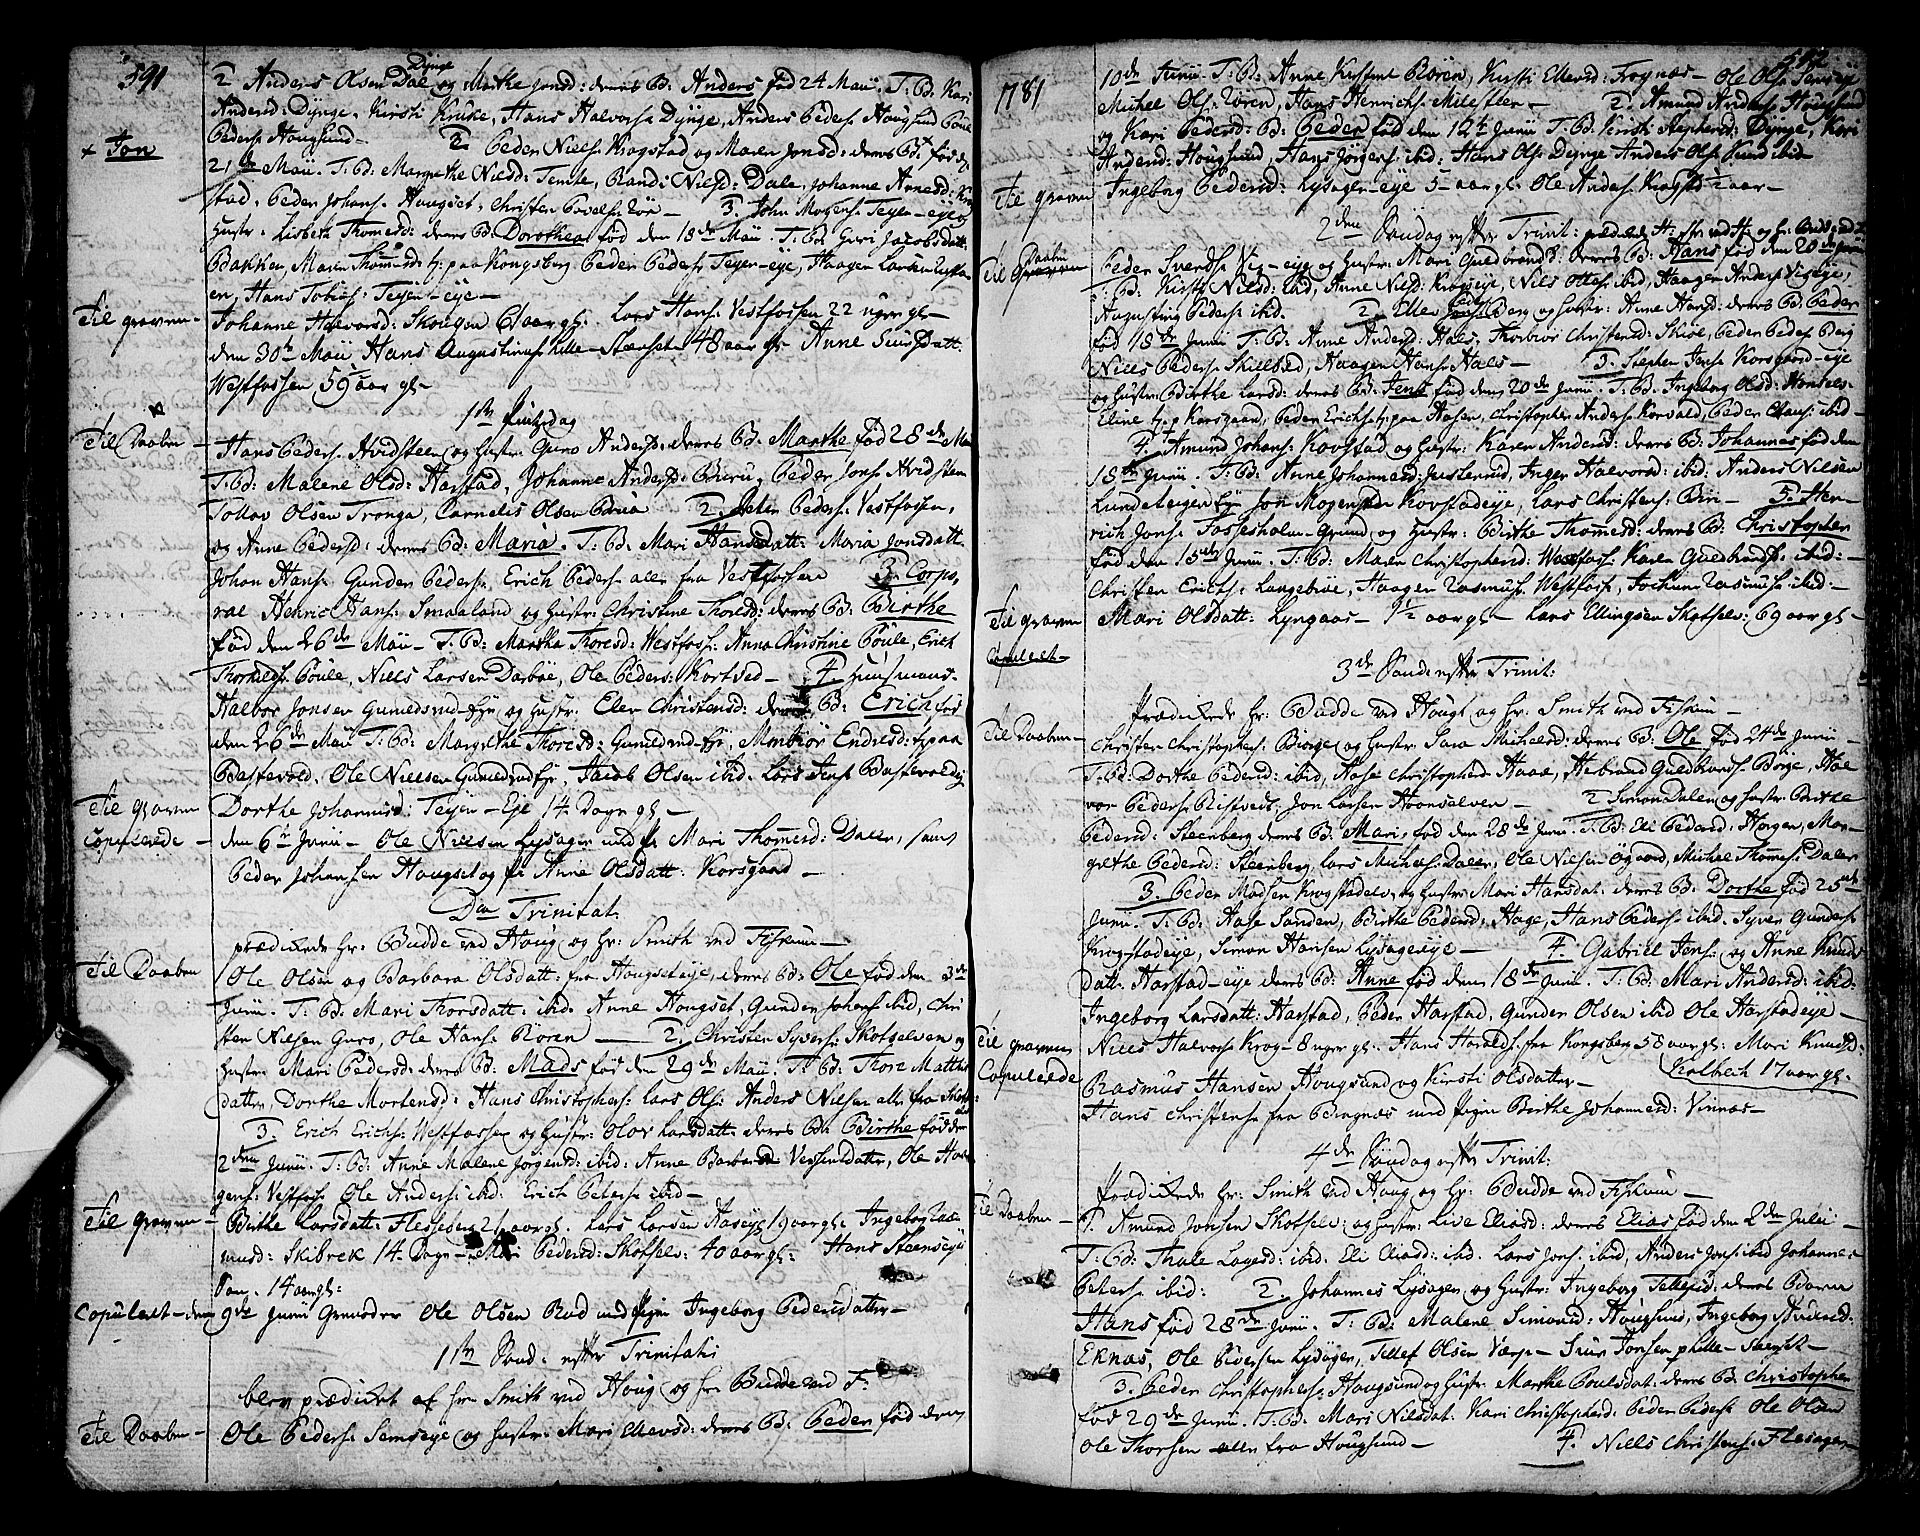 591
2 Anders Olsen Dal og Marthe Jonsd: deres B: Anders fød 24 Maii. T: B: Kari
Dynge
Andersd: Dynge, Kirsti Kruke, Hans Halvors: Dynge, Anders Peders: Hougsund Poul
+ Jon
Peders: Hougsund. 2 Peder Niels: Krogstad og Maren Jonsd: deres B: + fød d:
21de Maii. T: B: Margrethe Nielsd: Temte, Randi Nilsd: Dale, Johanne
stad, Peder Johans: Hougset, Christen Povels: Rør – 3. John Mogens: Teyen-eye og
Hustr: Lisbeth Thomesd: deres B: Dorothea fød den 18de Maii. T: B: Guri Jacobsdatt:
Bakken, Maren Thomesd: t: paa Kongsberg Peder Peders: Teyen-eye, Haagen Larsen
en, Hans Tobias: Teyen-eye –
Til Graven – Johanne Halvorsd: Skougen 6 aar gl: Lars Hans: Vestfossen 22 uger gl –
den 30te Maii Hans Augustinus: lille-Starset 48 aar gl: Anne Siursdatt:
Westfossen 59½ aar gl –
1ste Pintzdag
Til Daaben – Hans Peders: Hvidsteen og Hustr: Guro Andersd: deres B: Marthe fød 28de Maii
T: B: Malene Olsd: Harstad, Johanne Andersd: Buru, Peder Jons: Hvidsteen
Tollov Olsen Tronga, Cornelis Olsen Buia 2. Peter Peders: Vestfossen,
og Anne Pedersd: deres B: Maria. T: B: Mari Hansdatt: Maria Jonsdatt:
Johan Hans: Gunder Peders: Erich Peders: alle fra Vestfossen 3. Corpo,
ral Henric Hans: Smaaland og Hustr: Christine Thoresd: deres B: Birthe
fød den 26de Maii – T: B: Martha Thoresd: Westfoss: Anna Christine Poule, Erich
Thorkilds: Poule, Niels Larsen Darbøe, Ole Peders: Kortsed – 4. Huusmand
Halvor Jonsen Gunildsrud-Eye og Hustr: Elen Christensd: deres B: Erich fød
den 26de Maii T: B: Margrethe Thoresd: Gunildrud-Eye, Endresd: t: paa
Bastevold. Ole Nielsen Gunildrud Eye, Jacob Olsen ibid. Lars Jens: Bastevold
Til Graven Dorthe Johannesd: Teyen-Eje 14 Dage gl –
Copulerede – den 6te Junii – Ole Nielsen Lysager med P: Mari Thomesd: Dalen, samt
Peder Johansen Hougset og P: Anne Olsdatt: Korsgaard –
Dom Trinitat.
prædikede Hr: Budde ved Houg og Hr: Smith ved Fiskum –
Til Daaben 1 Ole Olsen og Barbara Olsdatt: fra Hougset eye, deres B: Ole fød den 3de
Junii. T: B: Mari Thorsdatt: ibid: Anne Hougset, Gunder Johans: ibid, Chri
sten Nielsen Guro, Ole Hans: Røren – 2. Christen Syvers: Skotselven og
Hustr: Mari Pedersd: deres B: Mads fød den 29de Maii. T: B: Thore Matthis
datter, Dorthe Mortensd: Hans Christophers: Lars Ols: Anders Nielsen alle fra
3 Erich Erichs: Westfossen og Hustr: Olov Larsdatt: deres B: Birthe fød den
2den Junii. T: B: Anne Malene Jørgensd: ibid: Anne Barbara Vessensdatter, Ole Haa
gens: Vestfoss: Ole Anders: ibid: Erich Peters: ibid –
Til Graven – Birthe Larsdatt: Flesseberg 26 aar gl. Lars Larsen Aaseye 19 aar gl: Ingeborg
musd: Skibrek 14. Dage – Mari Pedersd: Skotsel: 40 aar gl: Hans
14 aar gl:
Copuleret – den 9de Junii Grenader Ole Olsen Rud med Pigen Ingeborg Pedersdatter –
1ste Sønd: efter Trinitatis
blev prædiket af Hr: Smith ved Houg og Hr Budde ved F:
Til Daaben – Ole Peders: Semseye og Hustr: Mari Ellevsd: deres B: Peder fød den
1781
592
10de Junii. T: B: Anne Kirstine Røren, Kirsti Ellevsd: Frognæs – Ole Ols:
Michel Ols: Røren, Hans Henrichs: Milestler – 2. Amund Anders: Hougsund
og Kari Pedersd: B: Peder fød den 12te Junii T: B: Kirsti Stephensd: Dynge, Kari
Andersd: Hougsund, Hans Jørgens: ibid: Hans Ols: Dynge Anders Ols: Rud ibid
Til Graven Ingeborg Pedersd: Lysager-eye 5 aar gl: Ole Anders: Krogst: ½ aar –
2den Søndag efter Trinit: prædikede Hr: Smith ved H: og Hr: Budde ved F:
Til Daaben Peder Svends: Vig-eye og Hustr: Mari Guldbrandsd: deres B: Hans fød den 20de Junii
T: B: Kirsti Nilsd: ibid, Anne Nilsd: Krogseye, Niels Ottes: ibid, Haagen Anders: Vigeye,
Augustinus Peders: ibid. 2. Ellev Berg og Hustr: Anne Hansd: deres B: Peder
fød 18de Junii T: B: Anne Andersd: Hals, Thorbior Christensd: Skøe, Peder Peders: Berg
Niels Peders: Skillsted, Haagen Hans: Hals – 3. Stephen Jens: Korsgaard-eye
og Hustr: Birthe Larsd: deres B: Jens fød den 20de Junii. T: B: Ingeborg Olsd:
Eline t: p Korsgaard, Peder Erichs: t: paa Aasen, Christopher Anders: Korsvald, Peder Claus: ibid –
4. Amund Johans: Kopstad og Hustr: Karen Andersd: deres B: Johannes fød den
18de Junii. T: B: Anne Johannesd: Justerud, Inger Halvorsd: ibid: Anders Nilsen
Lundeteigen Ey Jon Mogensen Kopstadeye, Lars Christens: Biri – 5. Hen-
rich Jons: Fossesholm Grund og Hustr: Birthe Thomesd: deres B: Christopher
fød den 15de Junii. T: B: Maren Christophersd: Westfoss: Karen Guldbrandsd: ibid:
Christen Erichs: Langebroe, Haagen Rasmus: Westfoss: Jochum Rasmus: ibid –
Til Graven Mari Olsdatt: Lyngaas – 1½ aar gl – Lars Ellingsen Skotsel: 69 aar gl –
Copuleret –
3de Sønd efter Trinit:
Prædikede Hr: Budde ved Hougs og Hr: Smith ved Fiskum –
Til Daaben – Christen Christophers: Borge og Hustr: Sara Michelsd: deres B: Ole fød 24de Junii –
T: B: Dorthe Pedersd: ibid, Aase Christophersd: Haare, Herbrand Guldbrands: Borge, Hal
vor Peders: Ristvedt: Jon Larsen Hoenselven – 2 Simon Dalen og Hustr: Birthe
Pedersd: Steenberg deres B: Mari, fød den 28de Junii. T: B: Eli Pedersd: Horgen, Mar-
grethe Pedersd: Steenberg, Lars Michels: Dalen, Ole Nilsen Øgaard, Michel Thomes: Dalen
3. Peder Madsen Krogstadel: og Hustr: Mari Hansdat: deres B: Dorthe fød 25de
Junii. T: B: Aase Sanden, Birthe Pedersd: Hage, Hans Peders: ibid: Syver Gunders:
Krogstadeye, Simon Hansen Lysagereye – 4. Gabriel Jens: og Anne Knuds
datt: Harstad-eye deres B: Anne fød den 18de Junii. T: B: Mari Andersd: ibid:
Ingeborg Larsdatt: Harstad, Peder Harstad, Gunder Olsen ibid Ole Harstadeye –
Til Graven Niels Halvors: Krog – 8 uger gl: Hans Haralds: fra Kongsberg 58 aar gl: Mari Knudsd:
Kolbech 17 aar gl:
Copulerede Rasmus Hansen Hougsund og Kirsti Olsdatter –
Hans Christens: fra Bragnæs med Pigen Birthe Johannesd: Vinnæs –
4de Søndag efter Trinit:
Prædikede Hr: Smith ved Houg og Hr: Budde ved Fiskum –
Til Daaben – 1. Amund Jonsen Skotsel: og Hustr: Live Eliasd: deres Elias fød den 2den Julii
T: B: Thale Lagesd: ibid. Eli Eliasd: ibid. Lars Jons: ibid, Anders Jons: ibid Johannes
Peters: ibid: 2. Johannes Lysager og Hustr: Ingeborg Tellefsd: deres Barn
Hans fød 28de Junii. T: B: Malene Simonsd: Hougsund, Ingeborg
Eknæs, Ole Siversen Lysager, Tellef Olsen Værp – Siur Jonsen lille-Sterset –
3. Peder Christophers: Hougsund og Hustr: Marthe Poulsdat: deres B: Christopher
fød 29de Junii. T: B: Mari Nilsdat: Kari Christophersd: Peder Peders: Ole Olsen
Ole Thorsen – alle fra Hougsund – 4. Niels Christens: Flesager –